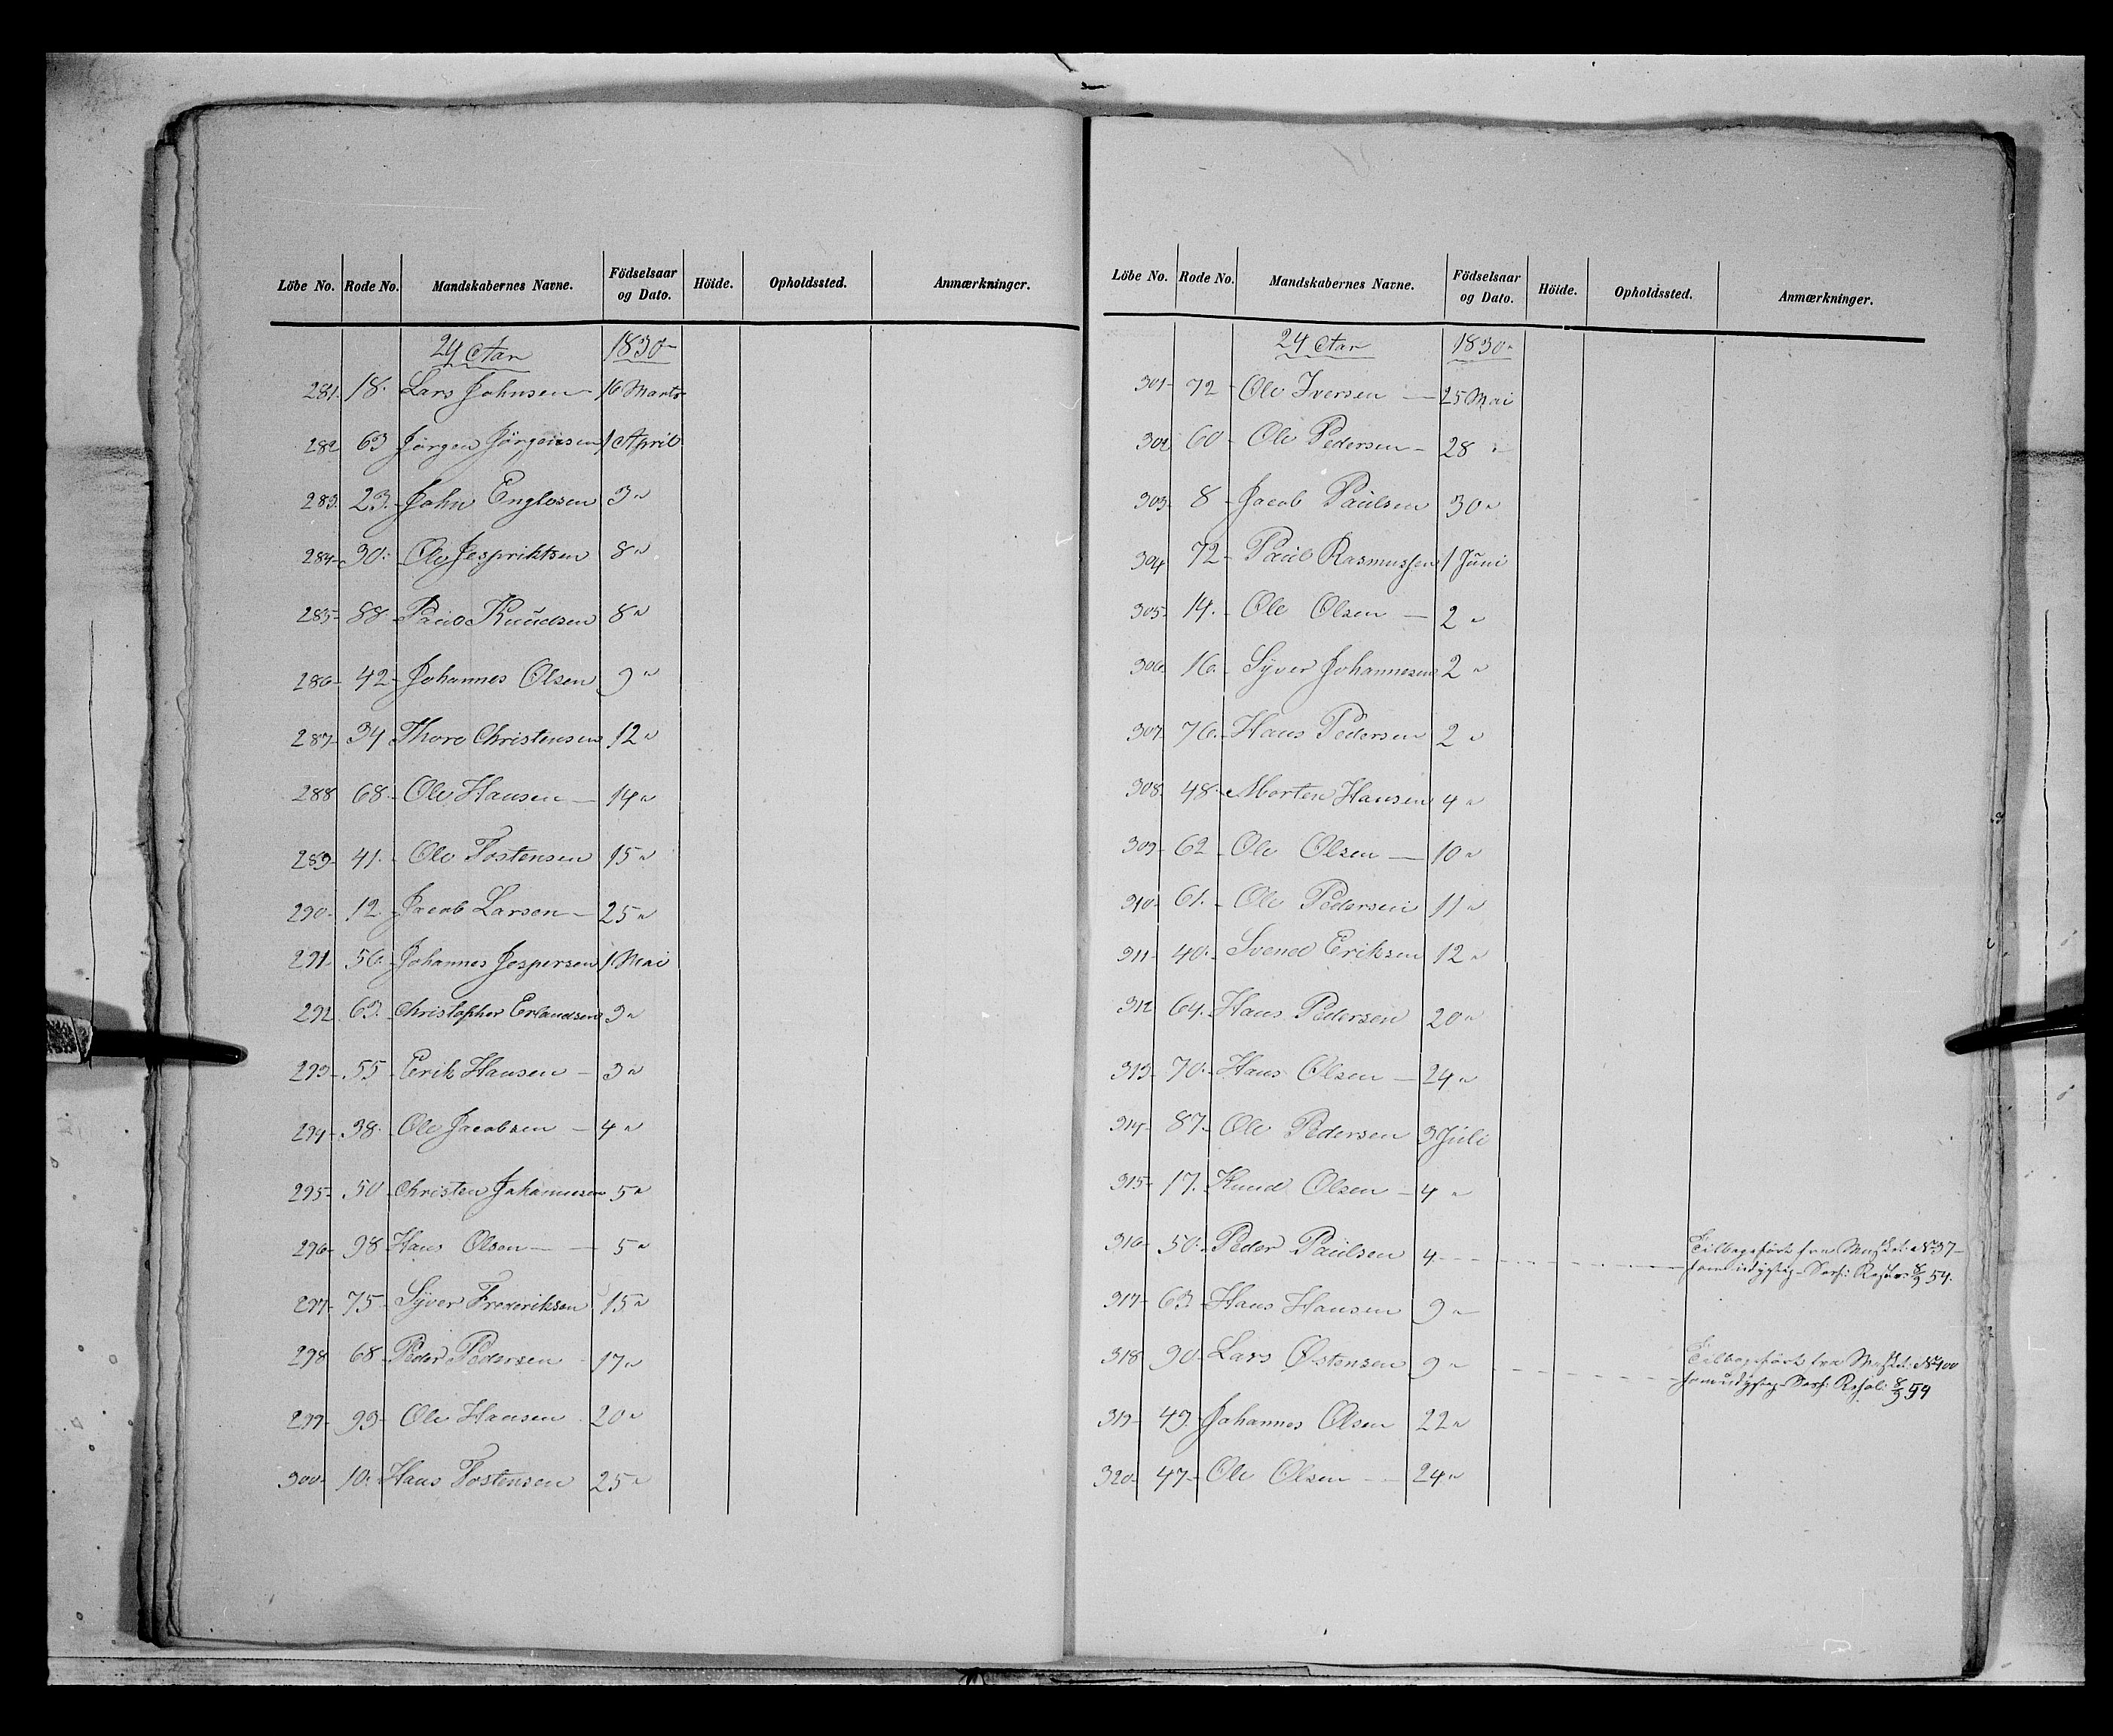 Löbe No. Rode No. Mandskabernes Navne. Födselsaar og Dato. Höide. Opholdssted. Anmærkninger.
24 Aar 1830
281. 18. Lars Johnsen 16 Marts
282 63 Jörgen Jörgensen 1 April
283. 23. John Englosen 3 "
284 30. Ole Jespriktsen 8 "
285 88 Paul Knudsen 8 "
286 42 Johannes Olsen 9 "
287 34 Thore Christensen 12 "
288 68. Ole Hansen 14 "
289 41. Ole Tostensen 15 "
290 12. Jacob Larsen 25 "
291 56. Johannes Jespersen 1 Mai
292 63. Christopher Erlandsen 3 "
293 55 Erik Hansen 3 "
294 38. Ole Jacobsen 4 "
295 50 Christen Johannesen 5 "
296 98 Hans Olsen 5 "
297 75 Syver Frederiksen 15 "
298 68 Peder Pedersen 17 "
299 93 Ole Hansen 20 "
300 10. Hans Tostensen 25 "
Löbe No. Rode No. Mandskabernes Navne. Födselsaar og Dato. Höide. Opholdssted. Anmærkninger.
24 Aar 1830
301 72 Ole Iversen 25 Mai
302 60 Ole Pedersen 28 "
303 8 Jacob Paulsen 30 "
304 72 Paul Rasmussen 1 Juni
305 14. Ole Olsen 2 "
306 16. Syver Johannesen 2 "
307 76. Hans Pedersen 2 "
308 48. Morten Hansen 4 "
309 62 Ole Olsen 10 "
310 61. Ole Pedersen 11 "
311 40. Svend Eriksen 12 "
312 64. Hans Pedersen 20 "
313 70. Hans Olsen 24 "
314 87. Ole Pedersen 3 Juli
315 17. Knud Olsen 4 "
316 50. Peder Paulsen 4 Tilbageført fra No 37
som udygtig 8/9 54.
317 63 Hans Hansen 9 "
318 90 Lars Østensen 9 " Tilbageført fra No 400
som udygtig 8/9 54
319 49. Johannes Olsen 22 "
320 47 Ole Olsen 24 "